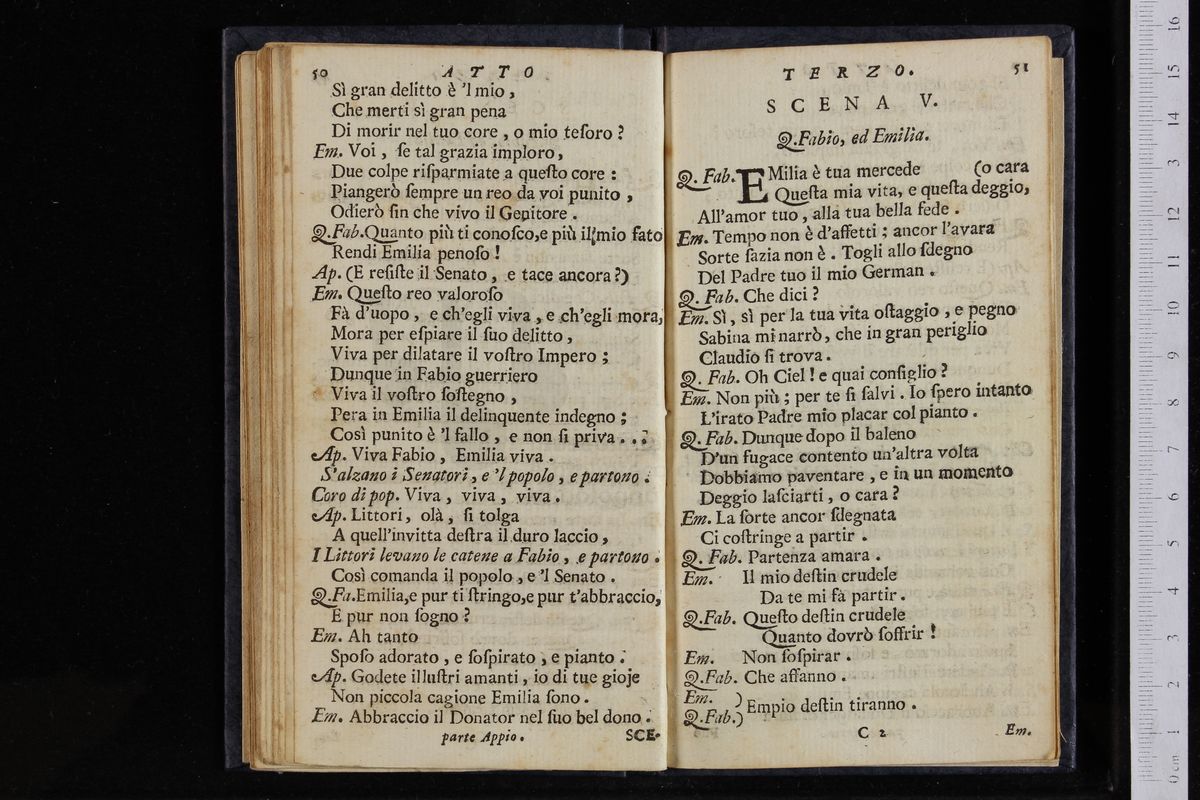 50 ATTO
Sì gran delitto è 'l mio,
Che merti sì gran pena
Di morir nel tuo core, o mio teſoro?
Em. Voi, ſe tal grazia imploro,
Due colpe riſparmiate a queſto core:
Piangerò ſempre un reo da voi punito,
Odierò fin che vivo il Genitore.
Q.Fab.Quanto più ti conoſco,e più il mio fato
Rendi Emilia penoſo!
Ap. (E reſiſte il Senato, e tace ancora?)
Em. Queſto reo valoroſo
Fà d'uopo, e ch'egli viva, e ch'egli mora,
Mora per eſpiare il ſuo delitto,
Viva per dilatare il voſtro Impero;
Dunque in Fabio guerriero
Viva il voſtro ſoſtegno,
Pera in Emilia il delinquente indegno;
Così punito è 'l fallo, e non ſi priva...
Ap. Viva Fabio, Emilia viva.
S'alzano i Senatori, e 'l popolo, e partono.
Coro di pop. Viva, viva, viva.
Ap. Littori, olà, ſi tolga
A quell'invitta deſtra il duro laccio,
I Littori levano le catene a Fabio, e partono.
Così comanda il popolo, e 'l Senato.
Q.Fa.Emilia,e pur ti ſtringo,e pur t'abbraccio,
E pur non ſogno?
Em. Ah tanto
Spoſo adorato, e ſoſpirato, e pianto.
Ap. Godete illuſtri amanti, io di tue gioje
Non piccola cagione Emilia ſono.
Em. Abbraccio il Donator nel ſuo bel dono.
parte Appio. SCE-
TERZO. 51
SCENA V.
Q.Fabio, ed Emilia.
Q. Fab. EMilia è tua mercede (o cara
Queſta mia vita, e queſta deggio,
All'amor tuo, alla tua bella fede.
Em. Tempo non è d'affetti; ancor l'avara
Sorte ſazia non è. Togli allo ſdegno
Del Padre tuo il mio German.
Q. Fab. Che dici?
Em. Sì, sì per la tua vita oſtaggio, e pegno
Sabina mi narrò, che in gran periglio
Claudio ſi trova.
Q. Fab. Oh Ciel! e quai conſiglio?
Em. Non più; per te ſi ſalvi. Io ſpero intanto
L'irato Padre mio placar col pianto.
Q. Fab. Dunque dopo il baleno
D'un fugace contento un'altra volta
Dobbiamo paventare, e in un momento
Deggio laſciarti, o cara?
Em. La ſorte ancor ſdegnata
Ci coſtringe a partir.
Q. Fab. Partenza amara.
Em. Il mio deſtin crudele
Da te mi fà partir.
Q.Fab. Queſto deſtin crudele
Quanto dovrò ſoffrir!
Em. Non ſoſpirar.
Q.Fab. Che affanno.
Em. )
Q.Fab.) Empio deſtin tiranno.
C 2 Em.
16
15
14
13
12
11
10
9
8
7
6
5
4
3
2
1
0 cm